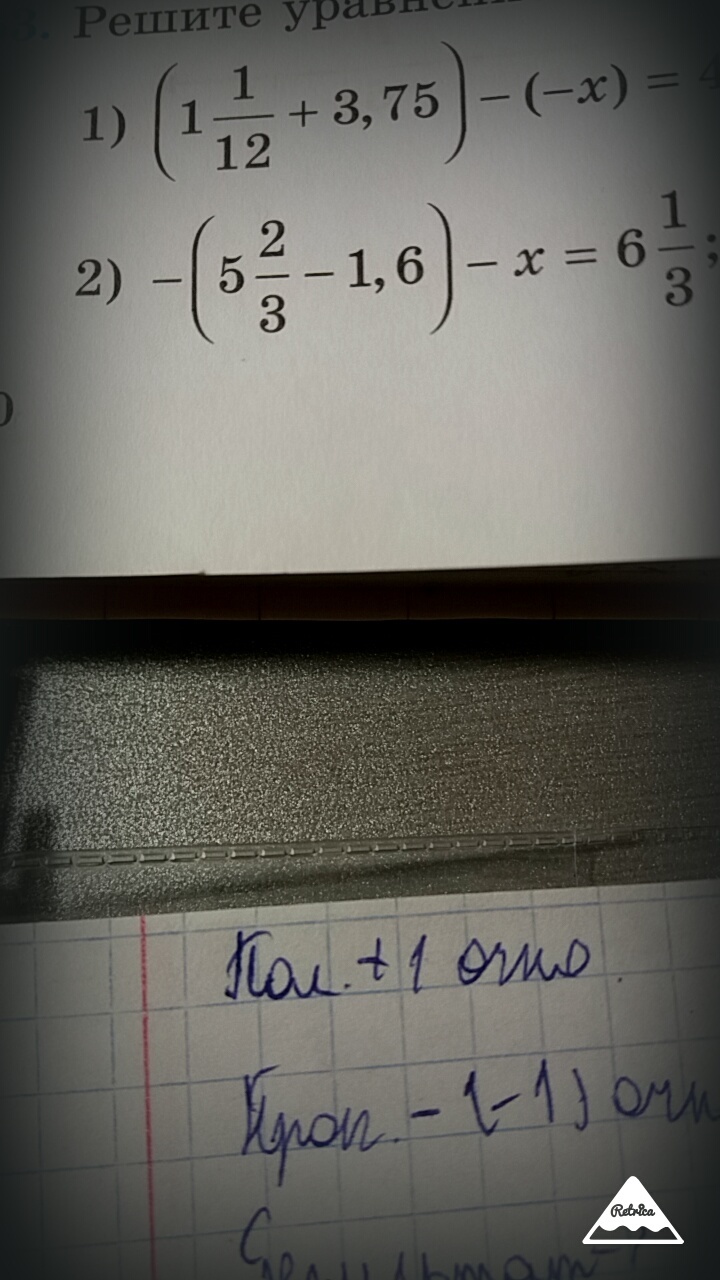 3. Решите уравнени
1) (1 1/12 + 3,75) − (−x) = 4
2) −(5 2/3 − 1,6) − x = 6 1/3;
+ 1 очко.
− (−1) очк
Retrica